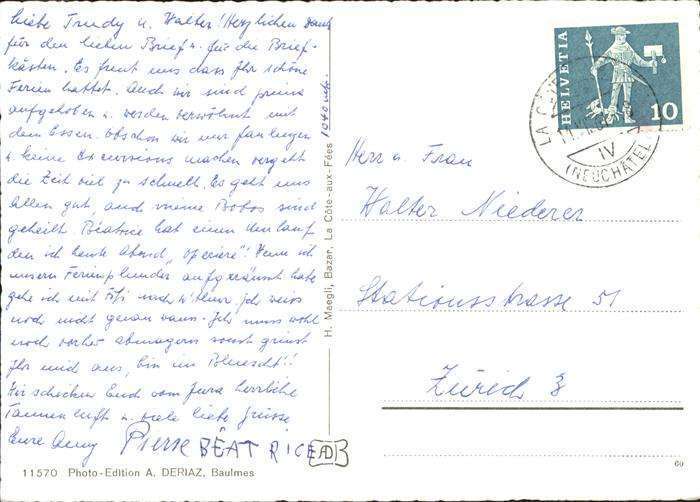 Liebe Trudy u. Walter! Herzlichen Dank
für den lieben Brief u. für die Brief-
kästen. Es freut uns dass Ihr schöne
Ferien hattet. Auch wir sind prima
aufgehoben u. werden verwöhnt mit
dem Essen. Obschon wir nur faulenzen
u. keine Exkursions machen vergeht
die Zeit viel zu schnell. Es geht uns
allen gut auch meine Bobos sind
geheilt. Béatrice hat einen
den ich heute Abend „operiere"! Wenn ich
unsern Ferienplunder aufgeräumt habe
gehe ich mit Fifi nach ich weiss
noch nicht genau wann. Ich muss wohl
noch vorher abmagern sonst
Ihr mich aus, bin im
Wir schicken Euch vom Jura herrliche
Tannenluft u. viele liebe Grüsse
Eure Pierre BÉATRICE
1040 m
H. Maegli, Bazar, La Côte-aux-Fées
11570 Photo-Edition A. DERIAZ, Baulmes
HELVETIA
10
LA
IV
(NEUCHÂTEL)
Herr u. Frau
Walter Niederer
Stationsstrasse 51
Zürich 3
60